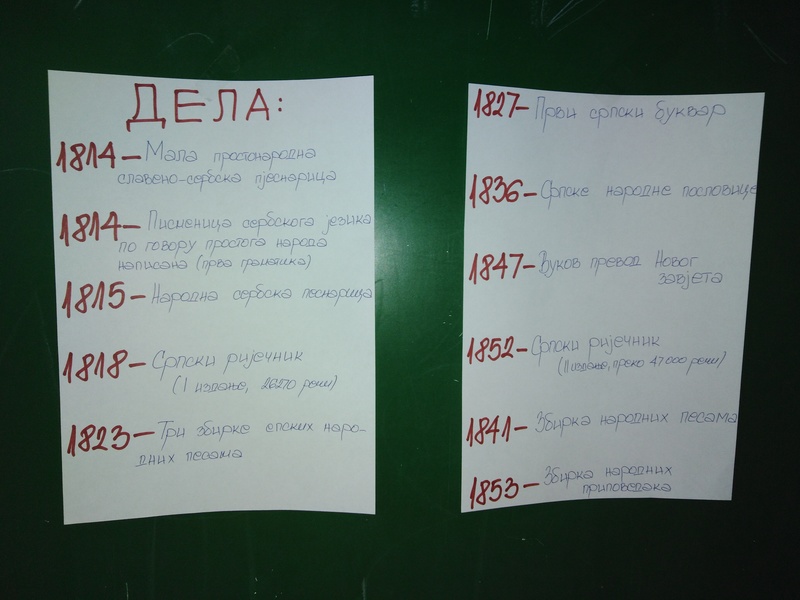 ДЕЛА:
1814– Мала простонародна
славено-сербска пјеснарица
1814– Писменица сербскога језика
по говору простога народа
написана (прва граматика)
1815– Народна сербска песнарица
1818– Српски ријечник
(I издање, 26270 речи)
1823– Три збирке епских наро-
дних песама
1827– Први српски буквар
1836– Српске народне пословице
1847– Вуков превод Новог
завјета
1852– Српски ријечник
(II издање, преко 47000 речи)
1841– Збирка народних песама
1853– Збирка народних
приповедака